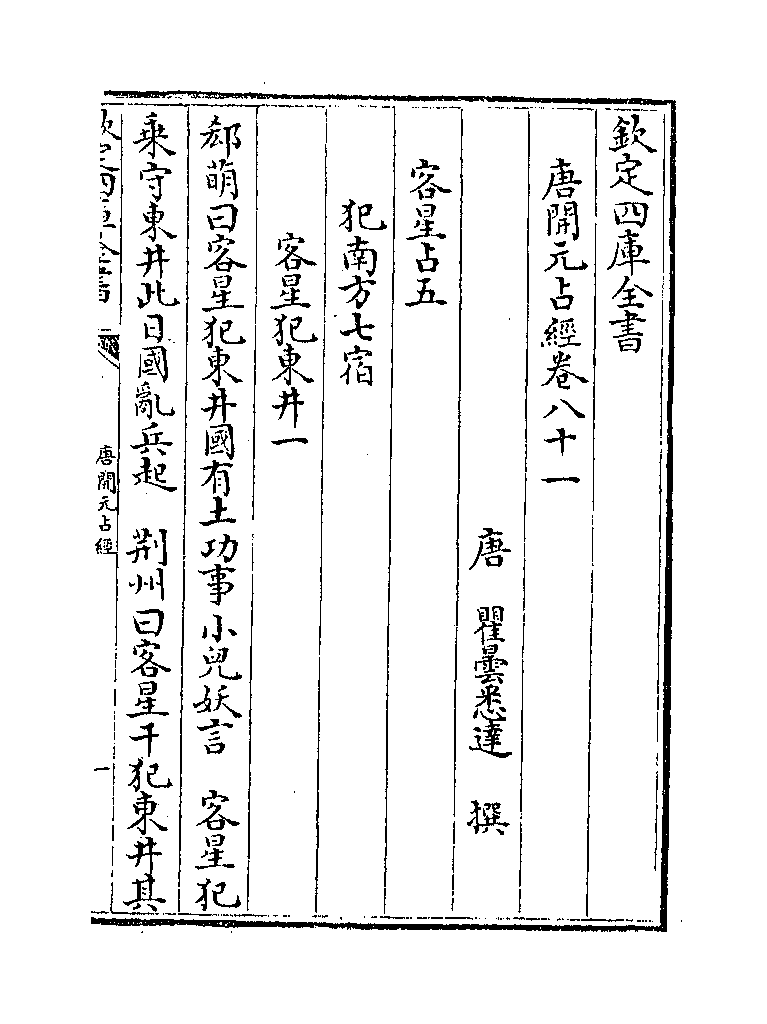 欽定四庫全書
唐開元占經卷八十一
唐 瞿曇悉達 撰
客星占五
犯南方七宿
客星犯東井一
郄萌曰客星犯東井國有土功事小兒妖言 客星犯
乗守東井此日國亂兵起 荆州曰客星干犯東井其
欽定四庫全書
唐開元占經
一